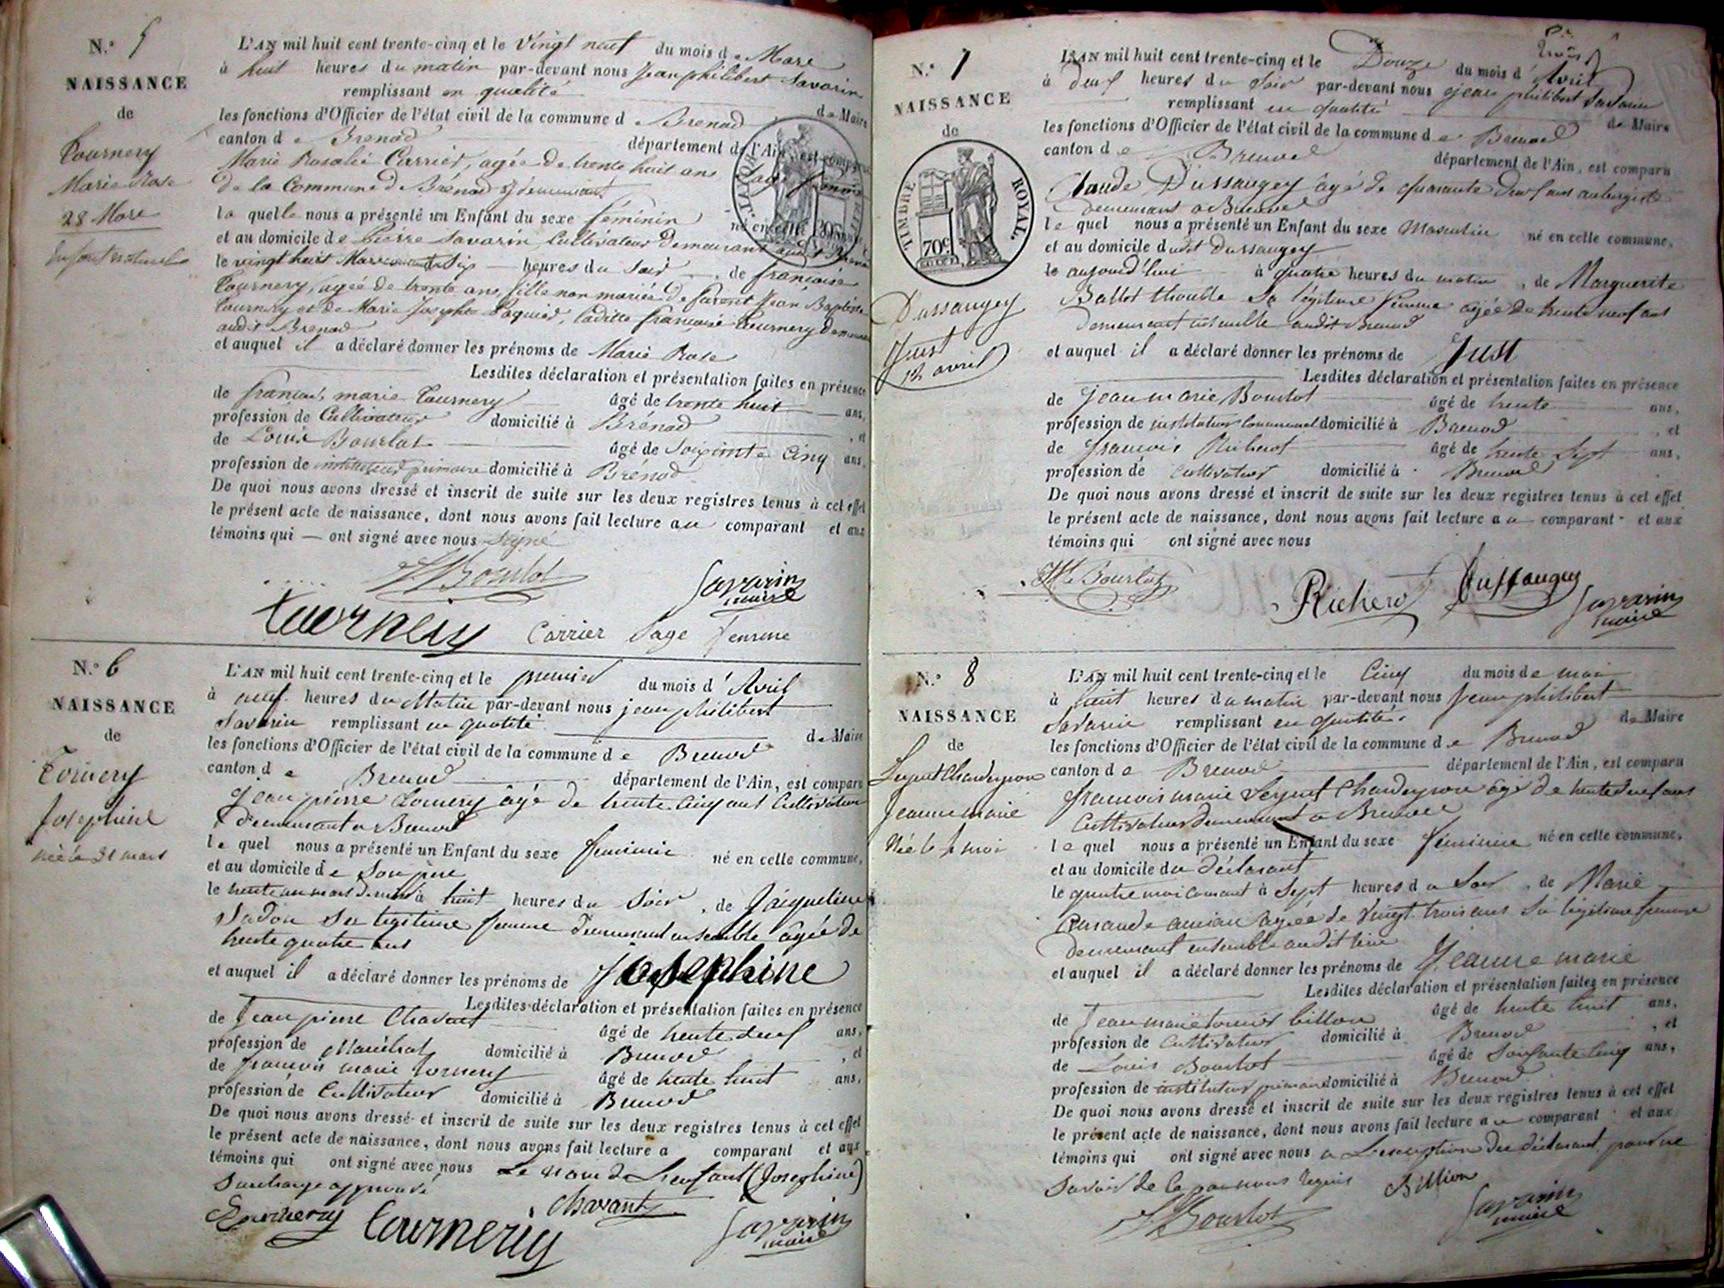 N.° 5
NAISSANCE
de
Tournery
Marie Rose
28 Mars
Enfant naturel
L'AN mil huit cent trente-cinq et le Vingt neuf du mois de Mars
à huit heures du matin par-devant nous Jean philibert Savarin
remplissant en qualité de Maire
les fonctions d'Officier de l'état civil de la commune de Brenod
canton de Brenod département de l'Ain, est comparu
Marie Rosalie Carrier, agée de trente huit ans sage femme
de la Commune de Brénod y demeurant
la quelle nous a présenté un Enfant du sexe féminin né en cette
et au domicile de Pierre Savarin Cultivateur demeurant
le vingt huit Mars à Six heures du Soir, de françoise
Tournery, agée de trente ans, fille non mariée de Jean Baptiste
Tournery et de Marie Josephte Paquier, ladite françoise Tournery
audit Brénod
et auquel il a déclaré donner les prénoms de Marie Rose
Lesdites déclaration et présentation faites en présence
de françois marie Tournery âgé de trente huit ans,
profession de Cultivateur domicilié à Brénod, et
de Louis Bourlot âgé de Soixante Cinq ans,
profession de instituteur primaire domicilié à Brénod
De quoi nous avons dressé et inscrit de suite sur les deux registres tenus à cet effet
le présent acte de naissance, dont nous avons fait lecture au comparant et aux
témoins qui — ont signé avec nous signé
Bourlot
Savarin
maire
tournery Carrier Sage femme
N.° 6
NAISSANCE
de
Tournery
Josephine
née le 31 mars
L'AN mil huit cent trente-cinq et le premier du mois d'Avril
à neuf heures du Matin par-devant nous jean philibert
Savarin remplissant en qualité de Maire
les fonctions d'Officier de l'état civil de la commune de Brenod
canton de Brenod département de l'Ain, est comparu
Jean pierre Tournery âgé de trente cinq ans Cultivateur
demeurant a Brenod
le quel nous a présenté un Enfant du sexe feminin né en cette commune,
et au domicile de Son père
le trente un mars dernier à huit heures du Soir, de Jacqueline
Sa légitime femme demeurant ensemble agée de
trente quatre ans
et auquel il a déclaré donner les prénoms de Josephine
Lesdites déclaration et présentation faites en présence
de Jean pierre Chavant âgé de trente neuf ans,
profession de Maréchal domicilié à Brenod, et
de françois marie Tornery âgé de trente huit ans,
profession de Cultivateur domicilié à Brenod
De quoi nous avons dressé et inscrit de suite sur les deux registres tenus à cet effet
le présent acte de naissance, dont nous avons fait lecture a comparant et aux
témoins qui ont signé avec nous Le nom de Lenfant (Josephine)
Surchargé approuvé
Chavant
Tournery tournery Savarin
maire
N.° 7
NAISSANCE
de
TIMBRE ROYAL.
70c
Dussaugey
Just
12 avril
L'AN mil huit cent trente-cinq et le Douze du mois d'Avril
à deux heures du Soir par-devant nous jean philibert Savarin
remplissant en qualité de Maire
les fonctions d'Officier de l'état civil de la commune de Brenod
canton de Brenod département de l'Ain, est comparu
Claude Dussaugey âgé de quarante deux ans aubergiste
demeurant a Brenod
le quel nous a présenté un Enfant du sexe Masculin né en cette commune,
et au domicile dudit Dussaugey
le aujourd'hui à quatre heures du matin, de Marguerite
Ballot Sa légitime femme agée de trente neuf ans
demeurant ensemble audit Brenod
et auquel il a déclaré donner les prénoms de Just
Lesdites déclaration et présentation faites en présence
de Jean marie Bourlot âgé de trente ans,
profession de instituteur Communal domicilié à Brenod, et
de françois Richerot âgé de trente Sept ans,
profession de Cultivateur domicilié à Brenod
De quoi nous avons dressé et inscrit de suite sur les deux registres tenus à cet effet
le présent acte de naissance, dont nous avons fait lecture au comparant et aux
témoins qui ont signé avec nous
Bourlot
Richerot Dussaugey
Savarin
maire
N.° 8
NAISSANCE
de
Jeanne marie
Née le 4 mai
L'AN mil huit cent trente-cinq et le Cinq du mois de mai
à huit heures du matin par-devant nous Jean philibert
Savarin remplissant en qualité de Maire
les fonctions d'Officier de l'état civil de la commune de Brenod
canton de Brenod département de l'Ain, est comparu
françois marie âgé de trente neuf ans
Cultivateur demeurant a Brenod
le quel nous a présenté un Enfant du sexe féminine né en cette commune,
et au domicile du déclarant
le quatre mai Courant à Sept heures du Soir, de Marie
agée de vingt trois ans Sa légitime femme
demeurant ensemble audit lieu
et auquel il a déclaré donner les prénoms de Jeanne marie
Lesdites déclaration et présentation faites en présence
de Jean marie billion âgé de trente huit ans,
profession de Cultivateur domicilié à Brenod, et
de Louis Bourlot âgé de Soixante Cinq ans,
profession de instituteur primaire domicilié à Brenod
De quoi nous avons dressé et inscrit de suite sur les deux registres tenus à cet effet
le présent acte de naissance, dont nous avons fait lecture au comparant et aux
témoins qui ont signé avec nous a L'exception du déclarant pour ne
Savoir de ce par nous requis Billion
Bourlot Savarin
maire